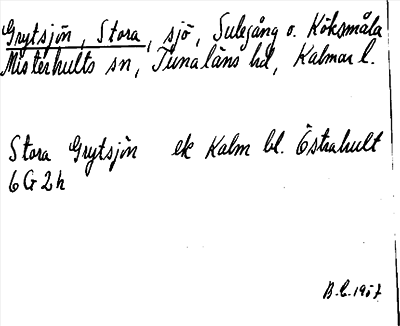 Grytsjön, Stora, sjö, Sulegång o. Köksmåla
Misterhults sn, Tunaläns hd, Kalmar l.
Stora Grytsjön ek Kalm bl. Östrahult
6G2h
B.L.1957